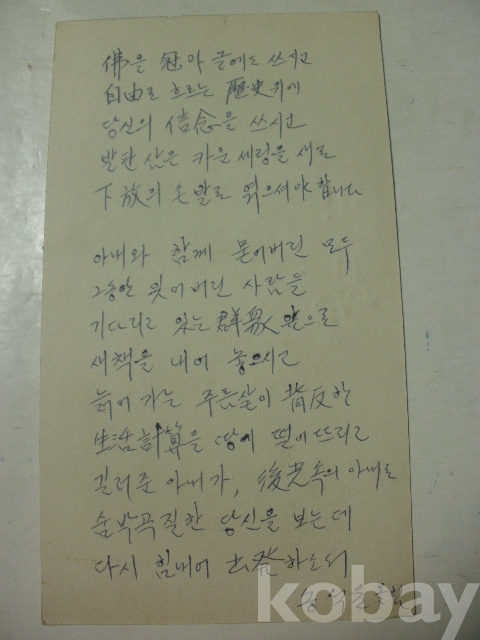 佛을 冠마 끝에도 쓰시고
自由로 흐르는 歷史위에
당신의 信念을 쓰시고
발판 삼은 카운세링을 새로
下放의 손발로 엮으셔야 합니다
아내와 함께 묻어버린 모두
그동안 잊어버린 사람들
기다리고 있는 群衆 앞으로
새책을 내어 놓으시고
늙어 가는 주름살이 背反한
生活計算을 땅에 떨어뜨리고
길러준 아내가, 後光속의 아내로
숨박곡질한 당신을 보는데
다시 힘내어 出發하소서
kobay